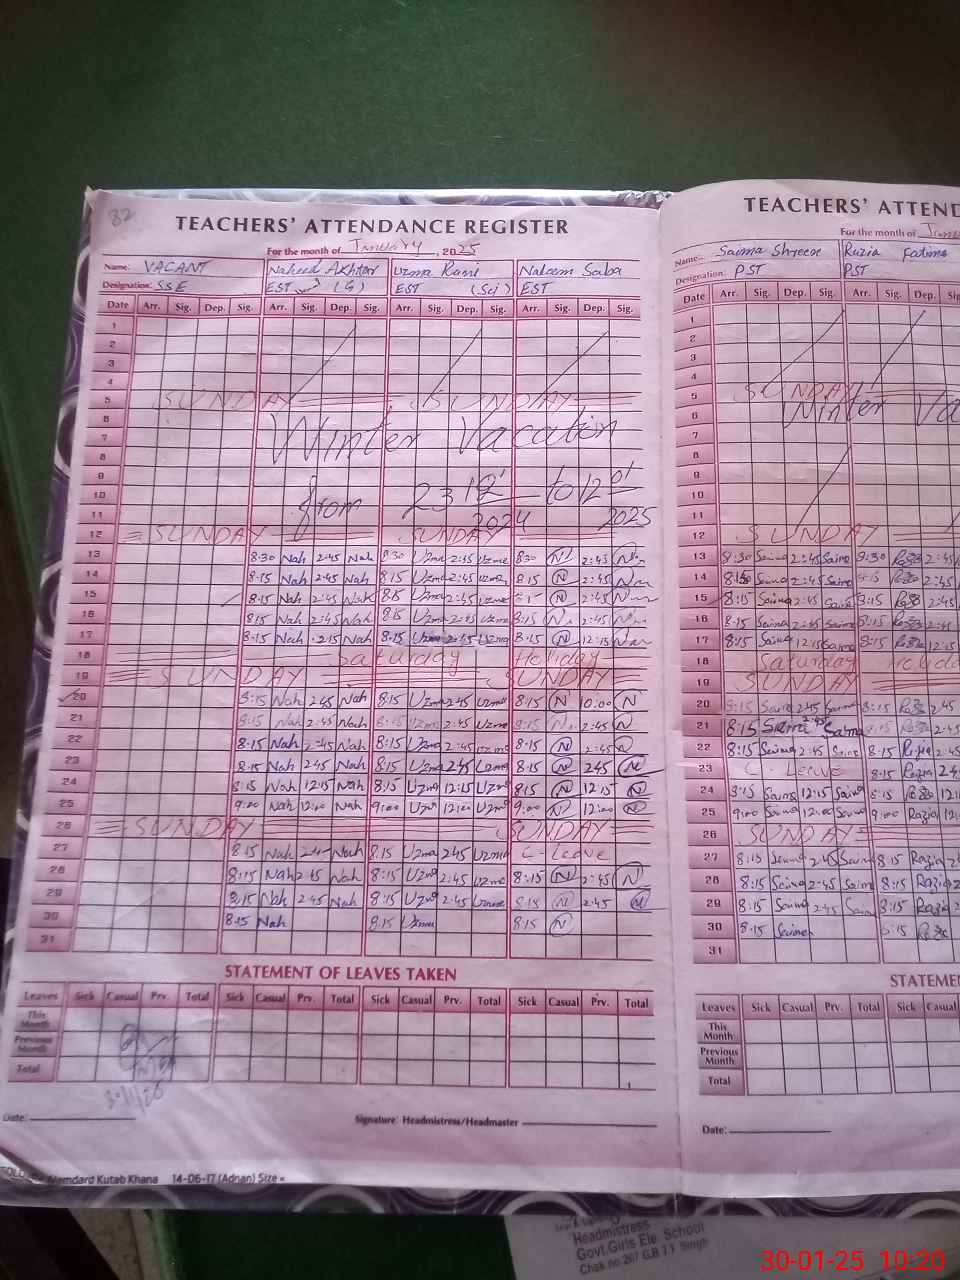 82
TEACHERS' ATTENDANCE REGISTER
For the month of January, 2025
Name: VACANT Naheed Akhtar Uzma Rani Naleem Saba
Designation: SSE EST (G) EST (Sci) EST
Date Arr. Sig. Dep. Sig. Arr. Sig. Dep. Sig. Arr. Sig. Dep. Sig. Arr. Sig. Dep. Sig.
1
2
3
4
5 SUNDAY SUNDAY
6 Winter Vacation
7
8
9
10 from 23 12 2024 to 12 01 2025
11
12 SUNDAY SUNDAY
13 8:30 Nah 2:45 Nah 8:30 Uzma 2:45 Uzma 8:30 N 2:45 N
14 8:15 Nah 2:45 Nah 8:15 Uzma 2:45 Uzma 8:15 N 2:45 N
15 8:15 Nah 2:45 Nah 8:15 Uzma 2:45 Uzma 8:15 N 2:45 N
16 8:15 Nah 2:45 Nah 8:15 Uzma 2:45 Uzma 8:15 N 2:45 N
17 8:15 Nah 12:15 Nah 8:15 Uzma Uzma 8:15 N 12:15 N
18 Saturday Holiday
19 SUNDAY SUNDAY
20 8:15 Nah 2:45 Nah 8:15 Uzma 2:45 Uzma 8:15 N 10:00 N
21 8:15 Nah 2:45 Nah 8:15 Uzma 2:45 Uzma 8:15 N 2:45 N
22 8:15 Nah 2:45 Nah 8:15 Uzma 2:45 Uzma 8:15 N 2:45 N
23 8:15 Nah 2:45 Nah 8:15 Uzma 2:45 Uzma 8:15 N 2:45 N
24 8:15 Nah 12:15 Nah 8:15 Uzma 12:15 Uzma 8:15 N 12:15 N
25 9:00 Nah 12:00 Nah 9:00 Uzma 12:00 Uzma 9:00 N 12:00 N
26 SUNDAY SUNDAY
27 8:15 Nah 2:45 Nah 8:15 Uzma 2:45 Uzma C-Leave
28 8:15 Nah 2:45 Nah 8:15 Uzma 2:45 Uzma 8:15 N 2:45 N
29 8:15 Nah 2:45 Nah 8:15 Uzma 2:45 Uzma 8:15 N 2:45 N
30 8:15 Nah 8:15 Uzma 8:15 N
31
STATEMENT OF LEAVES TAKEN
Leaves Sick Casual Prv. Total Sick Casual Prv. Total Sick Casual Prv. Total Sick Casual Prv. Total
This Month
Previous Month
Total
30/1/25
Date:
Signature: Headmistress/Headmaster
Hamdard Kutab Khana 14-06-17 (Adnan) Size =
TEACHERS' ATTEND
For the month of Janu
Name: Saima Shreen Razia Fatima
Designation: PST PST
Date Arr. Sig. Dep. Sig. Arr. Sig. Dep.
1
2
3
4
5 SUNDAY
6 Winter Va
7
8
9
10
11
12 SUNDAY
13 8:30 Saima 2:45 Saima 8:30 Razia 2:45
14 8:15 Saima 2:45 Saima 8:15 Razia 2:45
15 8:15 Saima 2:45 Saima 8:15 Razia 2:45
16 8:15 Saima 2:45 Saima 8:15 Razia 2:45
17 8:15 Saima 12:15 Saima 8:15 Razia 12:15
18 Saturday Holida
19 SUNDAY
20 8:15 Saima 2:45 Saima 8:15 Razia 2:45
21 8:15 Saima 2:45 Saima 8:15 Razia 2:45
22 8:15 Saima 2:45 Saima 8:15 Razia 2:45
23 C-Leave 8:15 Razia 2:4
24 8:15 Saima 12:15 Saima 8:15 Razia 12:1
25 9:00 Saima 12:00 Saima 9:00 Razia 12:0
26 SUNDAY
27 8:15 Saima 2:45 Saima 8:15 Razia 2:4
28 8:15 Saima 2:45 Saima 8:15 Razia 2:
29 8:15 Saima 2:45 Saima 8:15 Razia 2:
30 8:15 Saima 8:15 Razia
31
STATEME
Leaves Sick Casual Prv. Total Sick Casual
This Month
Previous Month
Total
Date:
Headmistress
Govt.Girls Ele. School
Chak no.267 G.B T.T Singh
30-01-25 10:20